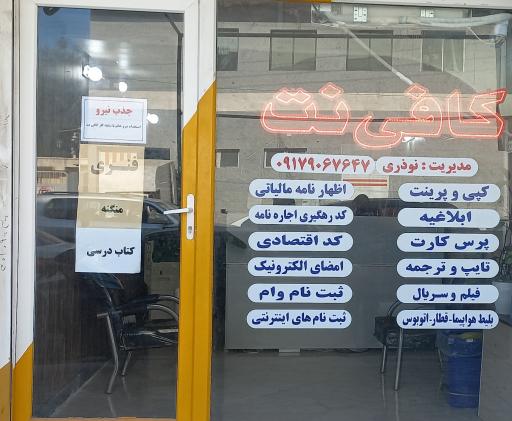 کافی نت
مدیریت : نوذری ۰۹۱۷۹۰۶۷۶۴۷
کپی و پرینت
ابلاغیه
پرس کارت
تایپ و ترجمه
فیلم و سریال
بلیط هواپیما-قطار-اتوبوس
اظهار نامه مالیاتی
کد رهگیری اجاره نامه
کد اقتصادی
امضای الکترونیک
ثبت نام وام
ثبت نام های اینترنتی
جذب نیرو
فنری
منگنه
کتاب درسی